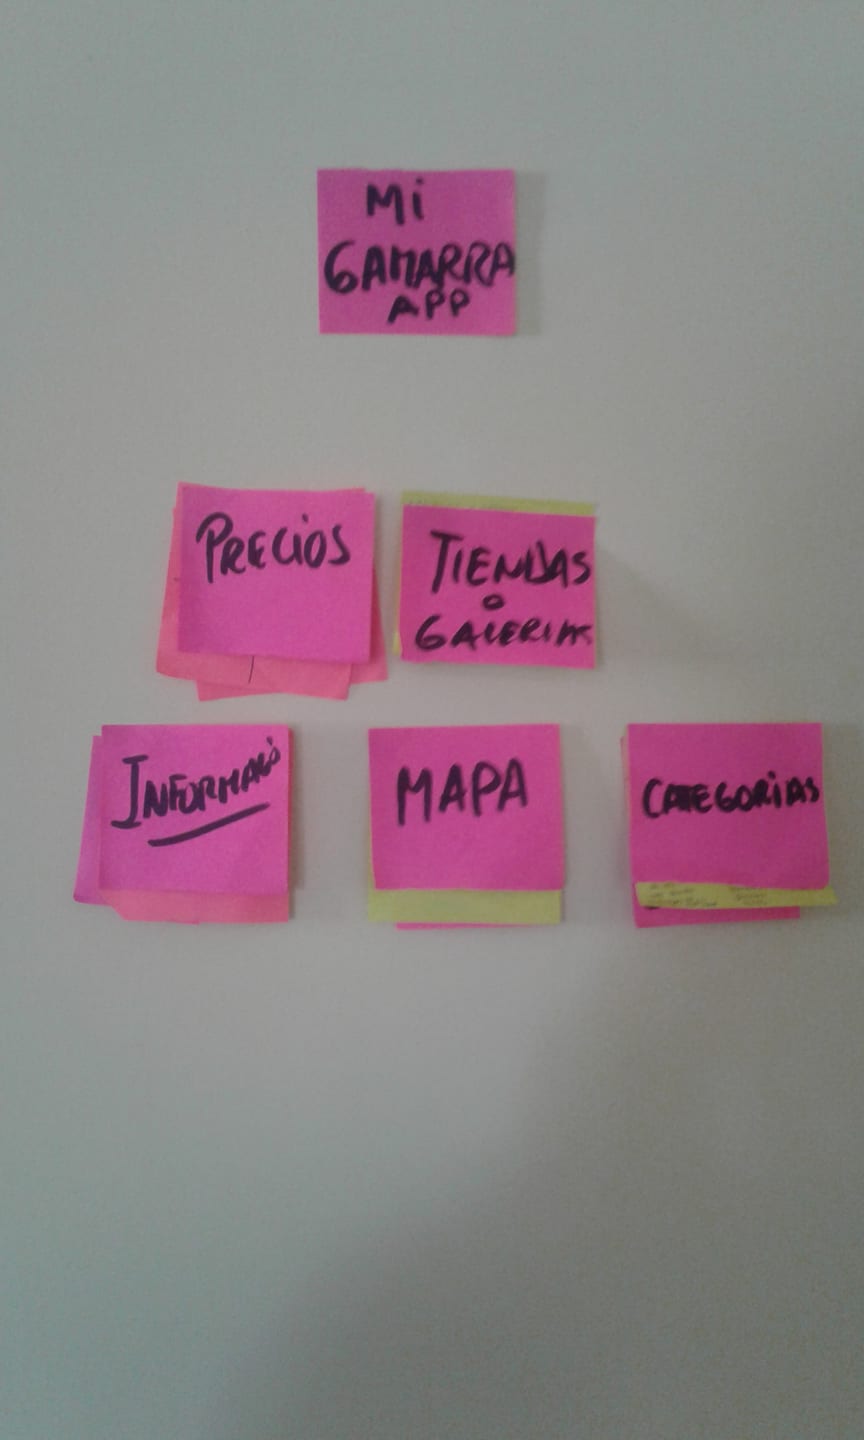 Mi
GAMARRA
APP
PRECIOS
TIENDAS
O
GALERIAS
INFORMACIÓ
MAPA
CATEGORIAS